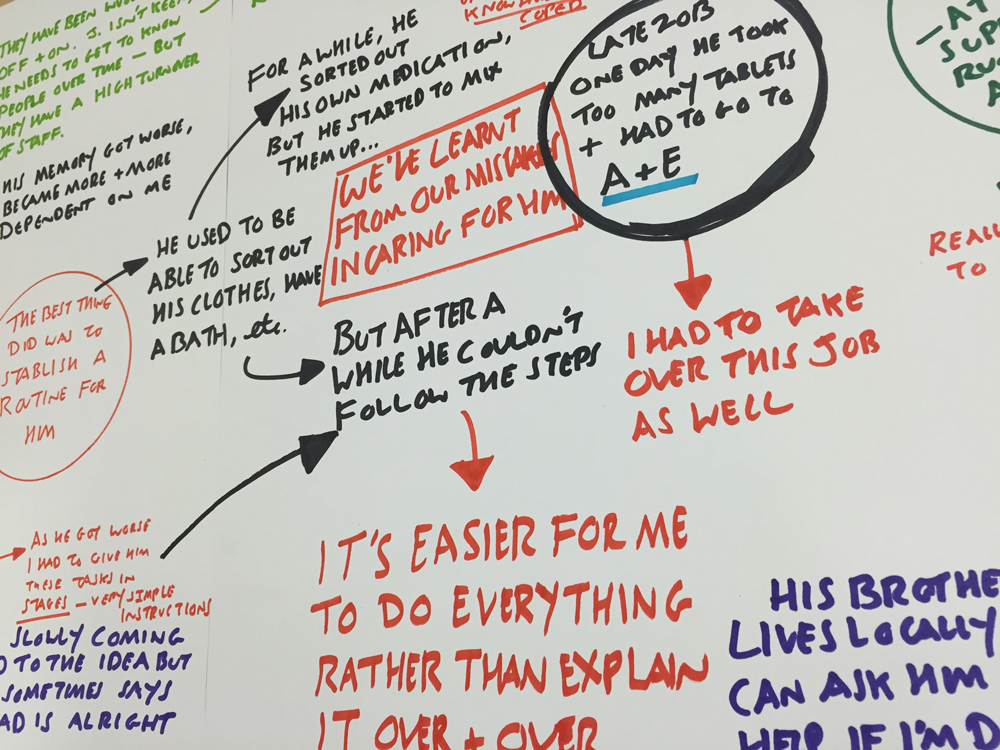 THEY HAVE BEEN
OFF + ON. J. ISN'T KEEN,
HE NEEDS TO GET TO KNOW
PEOPLE OVER TIME – BUT
THEY HAVE A HIGH TURNOVER
OF STAFF.
HIS MEMORY GOT WORSE,
BECAME MORE + MORE
DEPENDENT ON ME
FOR A WHILE, HE
SORTED OUT
HIS OWN MEDICATION,
BUT HE STARTED TO MIX
THEM UP...
COPED
LATE 2013
ONE DAY HE TOOK
TOO MANY TABLETS
+ HAD TO GO TO
A+E
WE'VE LEARNT
FROM OUR MISTAKES
IN CARING FOR HIM
HE USED TO BE
ABLE TO SORT OUT
HIS CLOTHES, HAVE
A BATH, etc.
THE BEST THING
DID WAS TO
STABLISH A
ROUTINE FOR
HIM
BUT AFTER A
WHILE HE COULDN'T
FOLLOW THE STEPS
I HAD TO TAKE
OVER THIS JOB
AS WELL
TO
AS HE GOT WORSE
I HAD TO GIVE HIM
THESE TASKS IN
STAGES – VERY SIMPLE
INSTRUCTIONS
SLOWLY COMING
TO THE IDEA BUT
SOMETIMES SAYS
AD IS ALRIGHT
IT'S EASIER FOR ME
TO DO EVERYTHING
RATHER THAN EXPLAIN
IT OVER + OVER
HIS BROTHE
LIVES LOCALLY
CAN ASK HIM
HELP IF I'M D